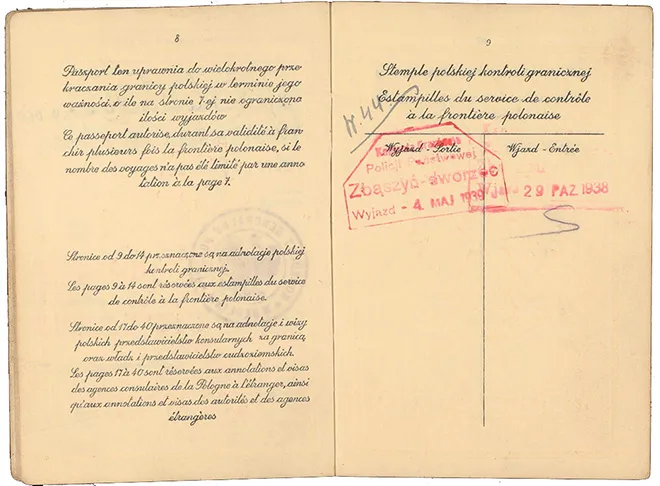 8
Paszport ten uprawnia do wielokrotnego prze-
kraczania granicy polskiej w terminie jego
ważności, o ile na stronie 7-ej nie ograniczono
ilości wyjazdów
Ce passeport autorise, durant sa validité à fran-
chir plusieurs fois la frontière polonaise, si le
nombre des voyages n'a pas été limité par une anno-
tation à la page 7.
Stronice od 9 do 14 przeznaczone są na adnotacje polskiej
kontroli granicznej.
Les pages 9 à 14 sont réservées aux estampilles du service
de contrôle à la frontière polonaise.
Stronice od 17 do 40 przeznaczone są na adnotacje i wizy
polskich przedstawicielstw konsularnych za granicą
oraz władz i przedstawicielstw cudzoziemskich.
Les pages 17 à 40 sont réservées aux annotations et visas
des agences consulaires de la Pologne à l'étranger, ainsi
qu'aux annotations et visas des autorités et des agences
étrangères
9
Stemple polskiej kontroli granicznej
Estampilles du service de contrôle
à la frontière polonaise
Wyjazd - Sortie
Wjazd - Entrée
Policji Państwowej
Zbąszyń-dworzec
Wyjazd - 4. MAJ 1939
29 PAZ. 1938